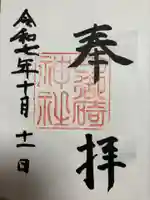 奉拝
御崎神社
令和七年十月十一日